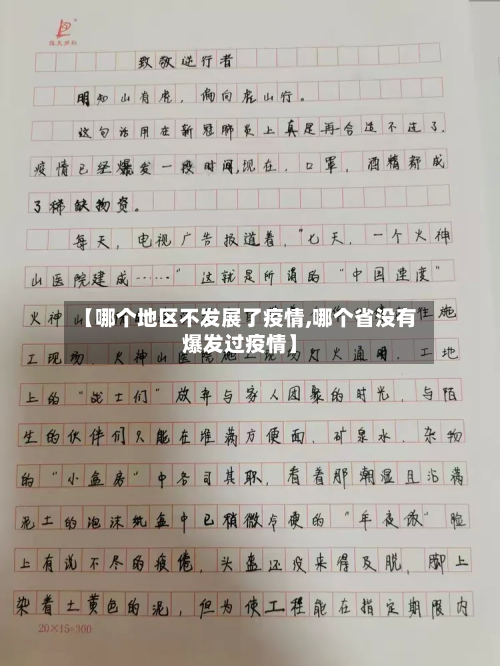 致敬逆行者
明知山有虎，偏向虎山行。
这句话用在新冠肺炎上真是再合适不过了.
疫情已经爆发一段时间,现在，口罩，酒精都成
了稀缺物资。
每天，电视广告报道着，“七天，一个火神
山医院建成……”这就是所谓的“中国速度”
火神山
【哪个地区不发展了疫情,哪个省没有
爆发过疫情】
性施
工现场，火神山医院施工现场灯火通明．工地
上的“战士们”放弃与家人团聚的时光，与陌
生的伙伴们只能在堆满方便面．矿泉水．杂物
的“小盒房”中各司其职，看着那潮湿且沾满
泥土的泡沫纸盒中已稍微冷硬的“年夜饭”脸
上有说不尽的疲倦，头盔还没来得及脱，脚上
染着土黄色的泥，但为使工程能在指定期限内
20×15=300